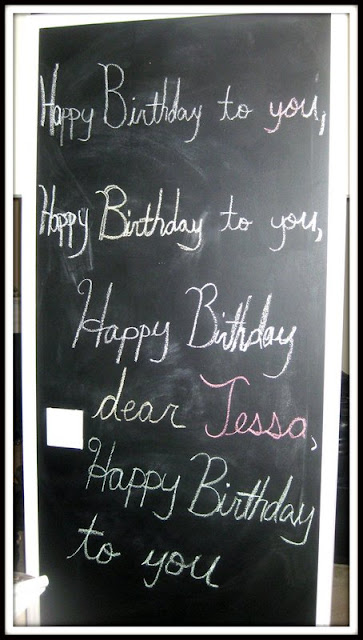 Happy Birthday to you,
Happy Birthday to you,
Happy Birthday
dear Tessa,
Happy Birthday
to you